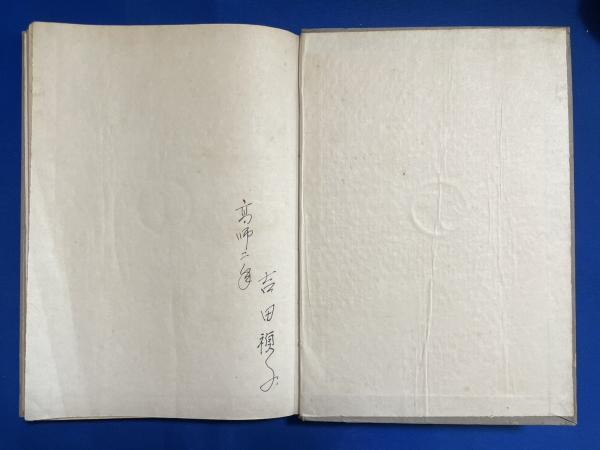 高師二年
吉田禎子